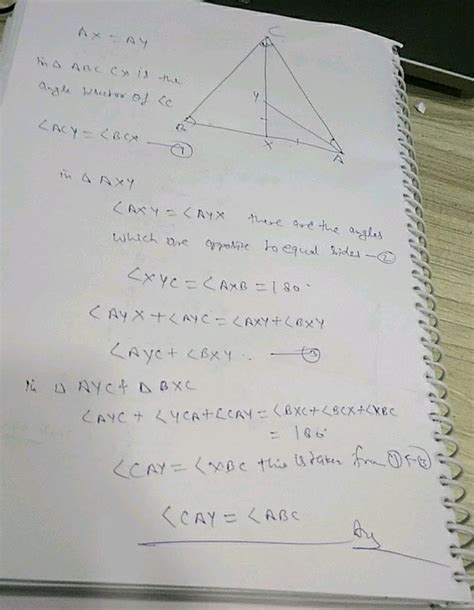 AX = AY
in Δ ABC CX is the
angle bisector of ∠C
∠ACY = ∠BCX — ①
C
Y
B
X
A
in Δ AXY
∠AXY = ∠AYX there are the angles
which are opposite to equal sides — ②
∠XYC = ∠AXB = 180°
∠AYX + ∠AYC = ∠AXY + ∠BXY
∠AYC + ∠BXY .. — ③
in Δ AYC & Δ BXC
∠AYC + ∠YCA + ∠CAY = ∠BXC + ∠BCX + ∠XBC
= 180°
∠CAY = ∠XBC this is taken from ① &
∠CAY = ∠ABC